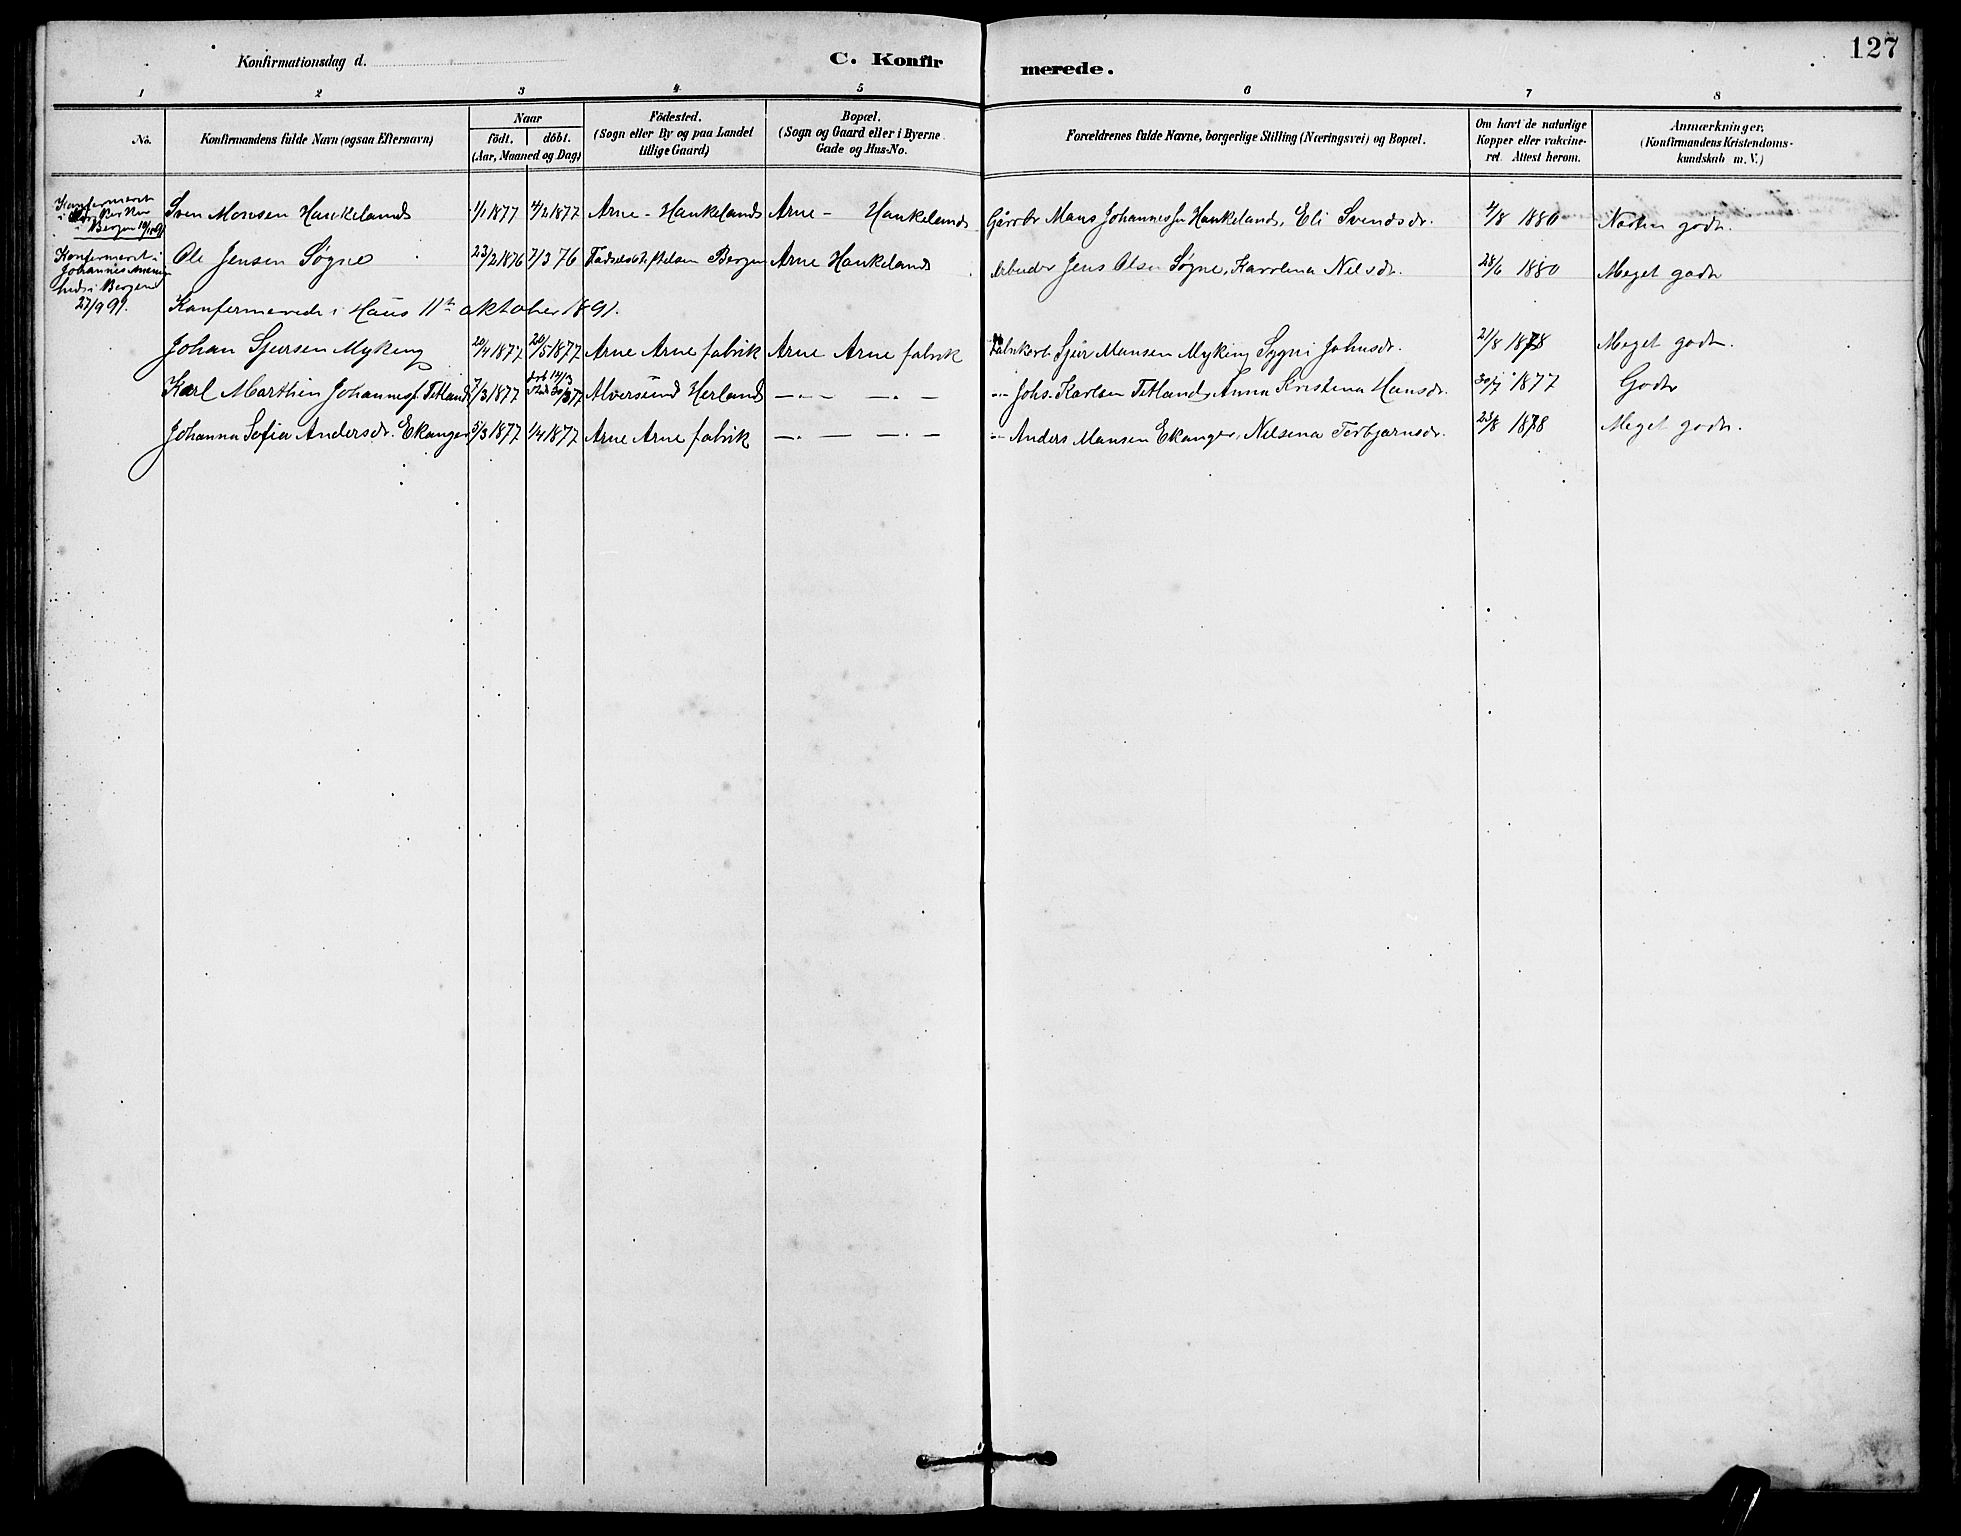 127
Konfirmationsdag d.
C. Konfirmerede.
1 2 3 4 5 6 7 8
No. Konfirmandens fulde Navn (ogsaa Efternavn) Naar født. døbt. (Aar, Maaned og Dag) Födested. (Sogn eller By og paa Landet tillige Gaard) Bopæl. (Sogn og Gaard eller i Byerne Gade og Hus-No. Forældrenes fulde Navne, borgerlige Stilling (Næringsvei) og Bopæl. Om havt de naturlige Kopper eller vakcineret. Attest herom. Anmærkninger. (Konfirmandens Kristendomskundskab m. V.)
Konfermeret i Bergen Sven Monsen Haukeland 1/1 1877 4/2 1877 Arne - Haukeland Arne - Haukeland Mons Johannesen Haukeland, Eli Svendsdr. 4/8 1880 godt.
Konfermeret i Johannes i Bergen 27/9 91. Ole Jensen Søgne 23/2 1876 7/3 76 Fødselsstiftelsen Bergen Arne Haukeland Arbeider Jens Olsen Søgne, Karolina Nilsdr. 28/6 1880 Meget godt
Konfermerede i Haus 11te oktober 1891.
Johan Sjursen Myking 20/4 1877 20/5 1877 Arne Arne fabrik Arne Arne fabrik Fabrikarb. Sjur Mansen Myking Sygni Johnsdr. 21/8 1878 Meget godt.
Karl Marthin Johannesf. Tetland 7/3 1877 Alversund Herland —.— —.— -"- Johs. Karlsen Tetland, Anna Kristina Hansdr. 30/7 1877 Godt
Johanna Sofia Andersdr. Ekanger 5/3 1877 1/4 1877 Arne Arne fabrik —.— —.— -"- Anders Mansen Ekanger, Nilsina Torbjørnsdr. 23/8 1878 Meget godt.